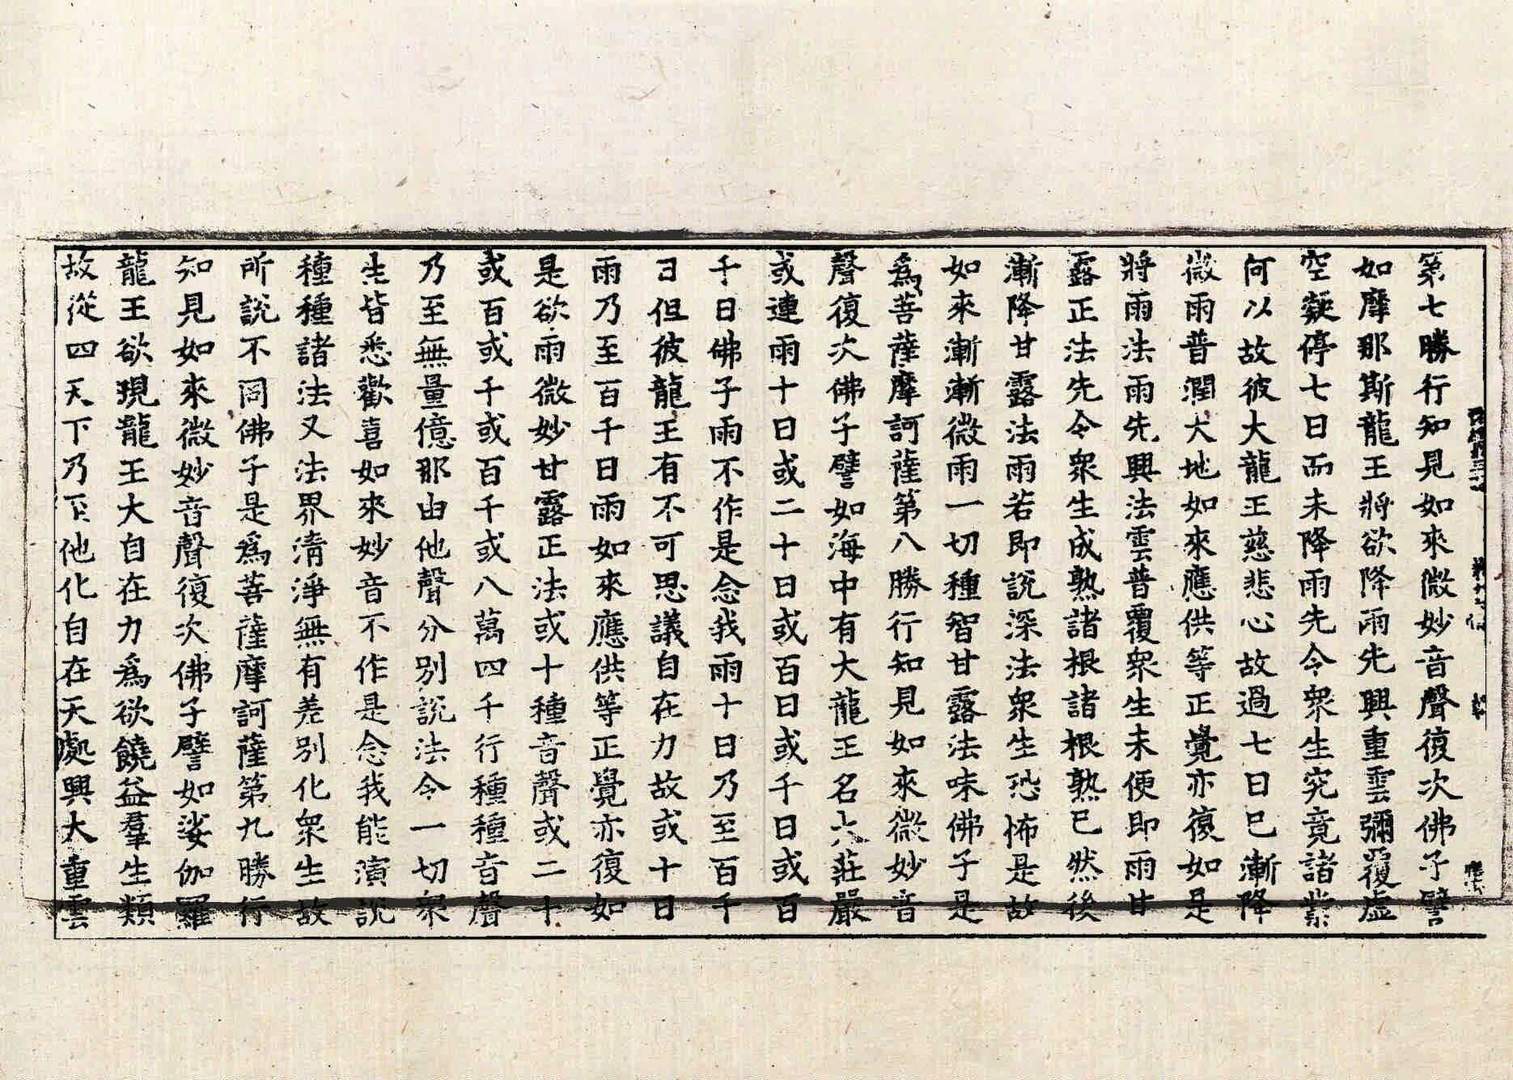 第七勝行知見如來微妙音聲復次佛子譬
如摩那斯龍王將欲降雨先興重雲彌覆虛
空凝停七日而未降雨先令衆生究竟諸業
何以故彼大龍王慈悲心故過七日已漸降
微雨普潤大地如來應供等正覺亦復如是
將雨法雨先興法雲普覆衆生未便即雨甘
露正法先令衆生成熟諸根諸根熟已然後
漸降甘露法雨若即説深法衆生恐怖是故
如來漸漸微雨一切種智甘露法味佛子是
爲菩薩摩訶薩第八勝行知見如來微妙音
聲復次佛子譬如海中有大龍王名大莊嚴
或連雨十日或二十日或百日或千日或百
千日佛子雨不作是念我雨十日乃至百千
日但彼龍王有不可思議自在力故或十日
雨乃至百千日雨如來應供等正覺亦復如
是欲雨微妙甘露正法或十種音聲或二十
或百或千或百千或八萬四千行種種音聲
乃至無量億那由他聲分別説法令一切衆
生皆悉歡喜如來妙音不作是念我能演説
種種諸法又法界清淨無有差別化衆生故
所説不同佛子是爲菩薩摩訶薩第九勝行
知見如來微妙音聲復次佛子譬如娑伽羅
龍王欲現龍王大自在力爲欲饒益羣生類
故從四天下乃至他化自在天處興大重雲